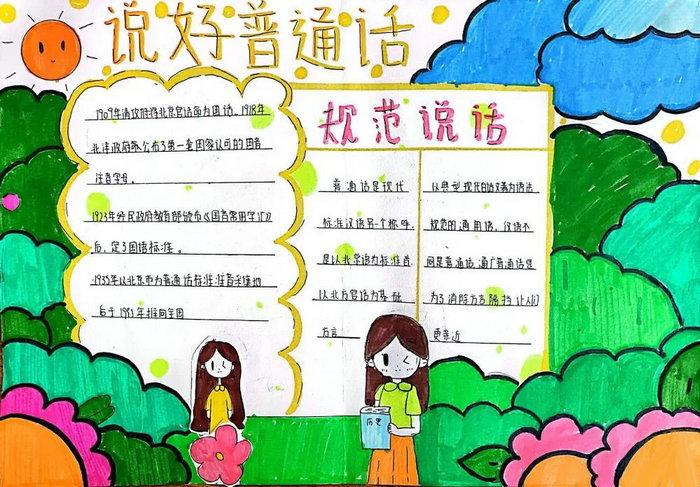 说好普通话
1909年清政府将北京官话命为国语，1918年
北洋政府公布了第一套国家认可的国音
注音字母。
1923年 教育部颁布《国音常用字汇》
后，定了国语标准。
1955年以北京市为普通话标准音采集地
后于1951年推向全国
规范说话
普通话是现代
标准汉语另一个称呼，
是以北京语为标准音
以北方官话为基础
方言
以典型现代白话文为语法
规范的通用语，汉语不
同是普通话，推广普通话是
为了消除方言隔 让人们
更亲近
历史